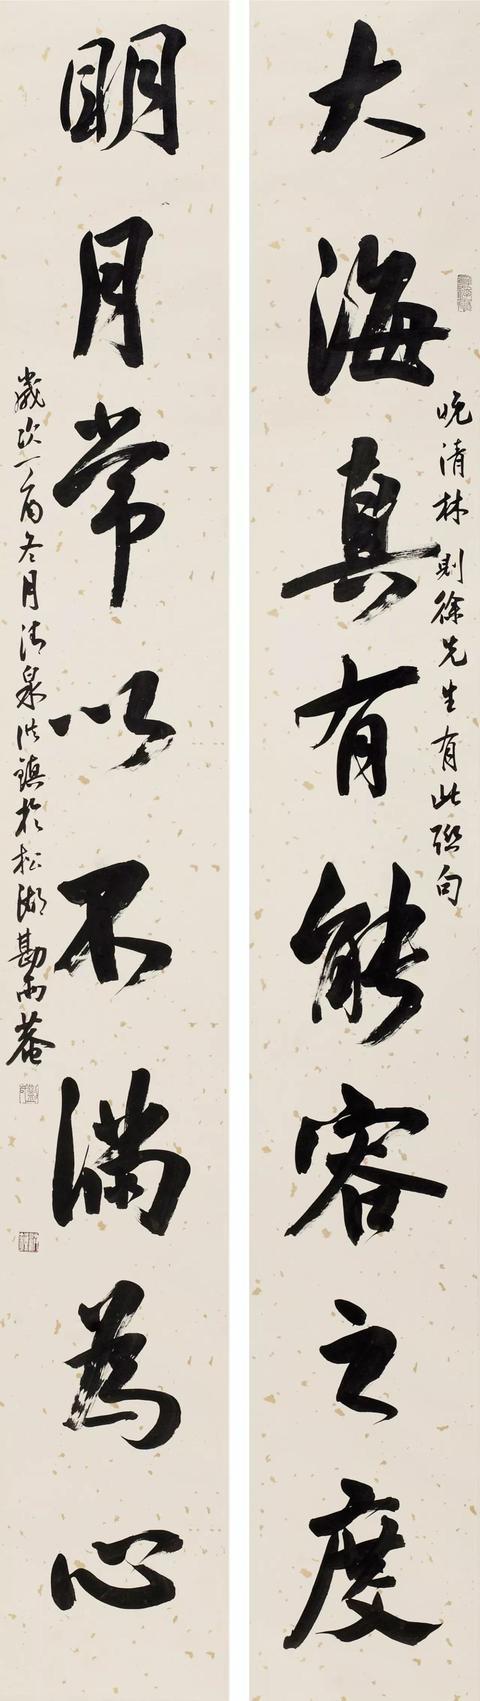 大海真有能容之度
晚清林则徐先生有此联句
明月常以不满為心
歲次丁酉冬月清泉洪镇於松湖勘雨菴